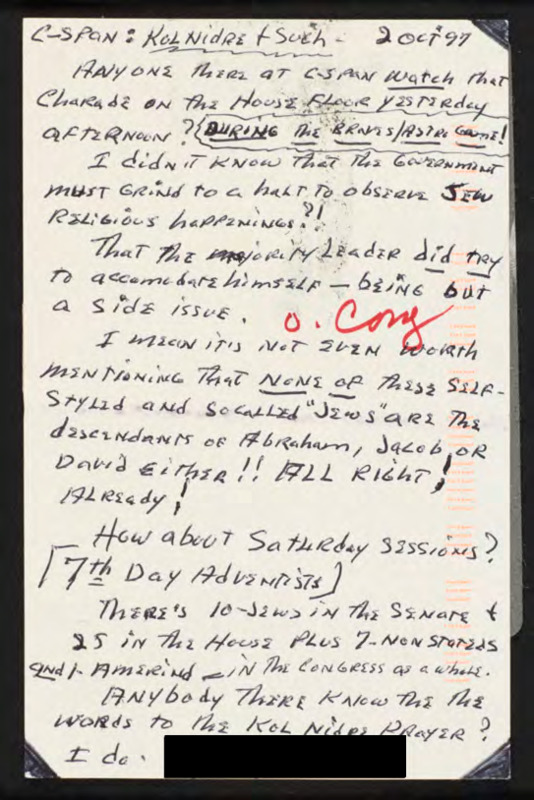 C-SPAN: KOL NIDRE + SUCH - 2 OCT 97
ANYONE THERE AT C-SPAN WATCH THAT
CHARADE ON THE HOUSE FLOOR YESTERDAY
AFTERNOON? (DURING THE BRAVES/ASTRO GAME!
I didN'T KNOW THAT THE GOVERNMENT
MUST GRIND to a haLT TO OBSERVE JEW
RELIGIOUS hAPPENINGS?!
That the majority Leader did try
to accomodate himself — being but
a side issue.
O. Cong
I mean it's not even worth
mentioning that NONE OF THESE SELF-
STYLED and Socalled "Jews" ARE the
descendants of Abraham, Jacob, OR
David Either!! ALL RIGHT!
ALREADY!
How about Saturday Sessions?
[7th Day Adventists]
There's 10-Jews in the Senate &
25 in the House plus 7-NON STATEDS
and 1-Amerind — in the Congress as a whole.
Anybody There Know the the
words to the Kol Nidre Prayer?
I do.